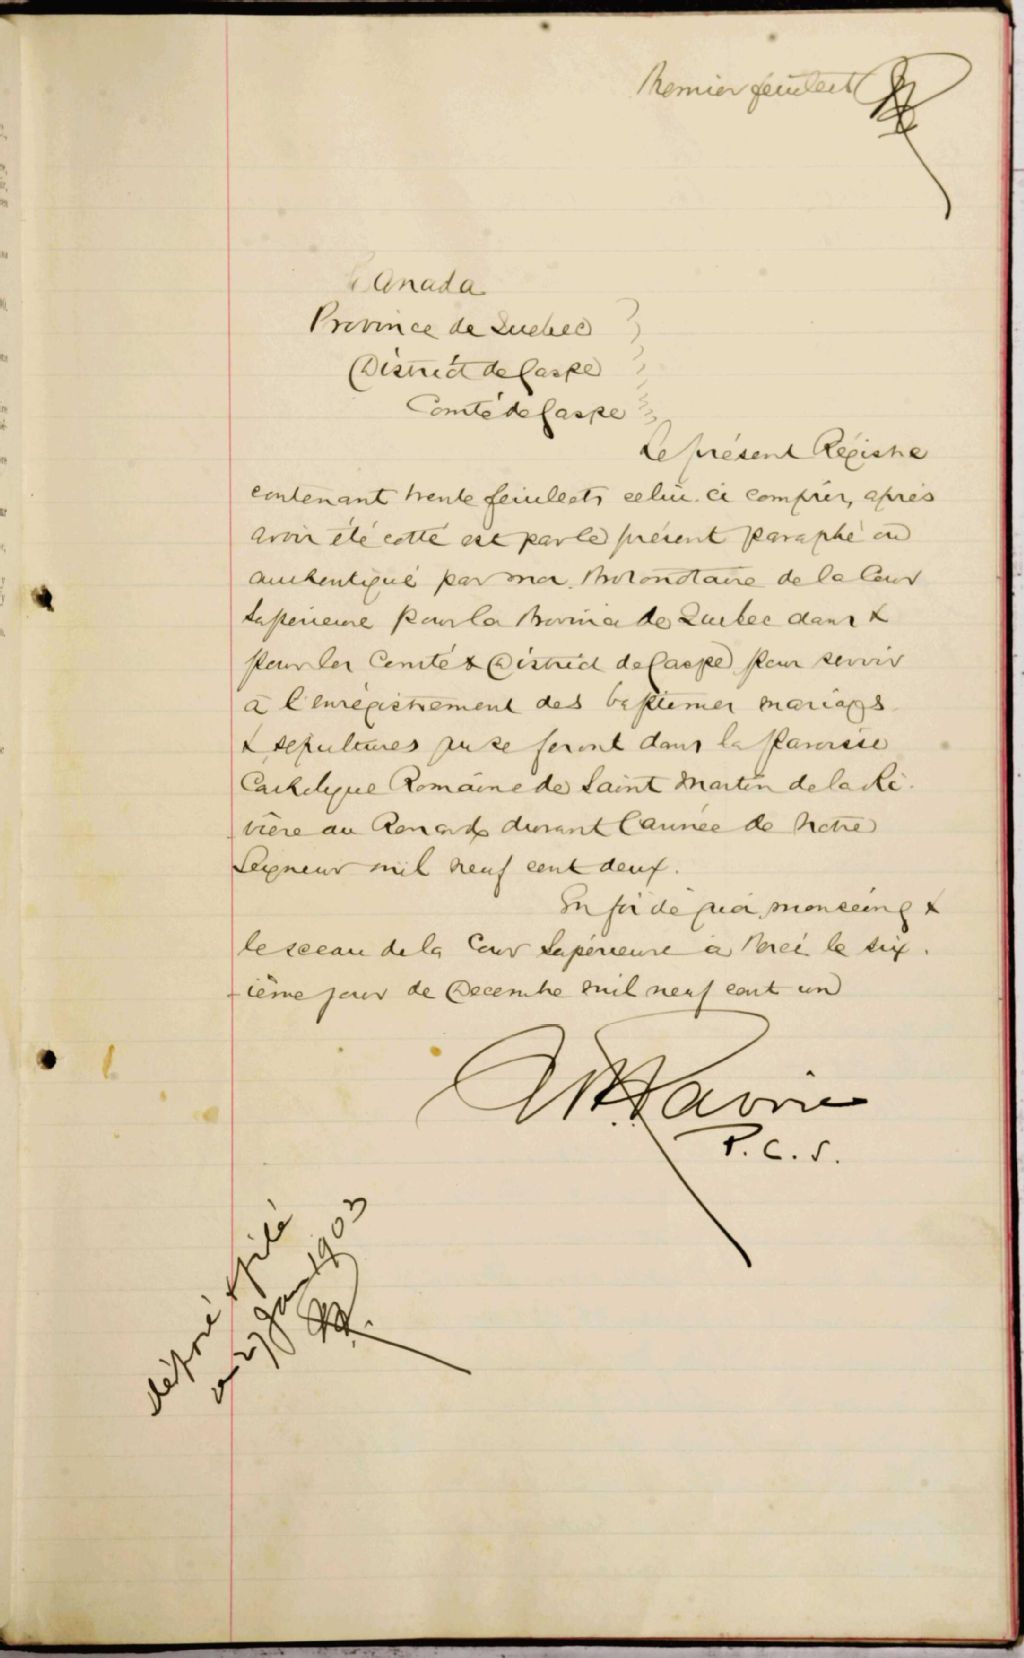 Premier feuillet
Canada
Province de Quebec
District de Gaspe
Comté de Gaspe
Le présent Régistre
contenant trente feuillets celui-ci compris, après
avoir été cotté est par le présent paraphé ou
authentiqué par moi Protonotaire de la Cour
Superieure pour la Province de Quebec dans &
pour les Comté & District de Gaspe pour servir
à l'enrégistrement des baptemes mariages
& sepultures qui se feront dans la Paroisse
Catholique Romaine de Saint Martin de la Ri-
vière au Renard durant l'année de Notre
Seigneur mil neuf cent deux.
En foi de quoi, mon seing &
le sceau de la Cour Supérieure à Percé le six-
ième jour de Decembre mil neuf cent un
P.C.S.
déposé & filé
ce 27 Jan 1903